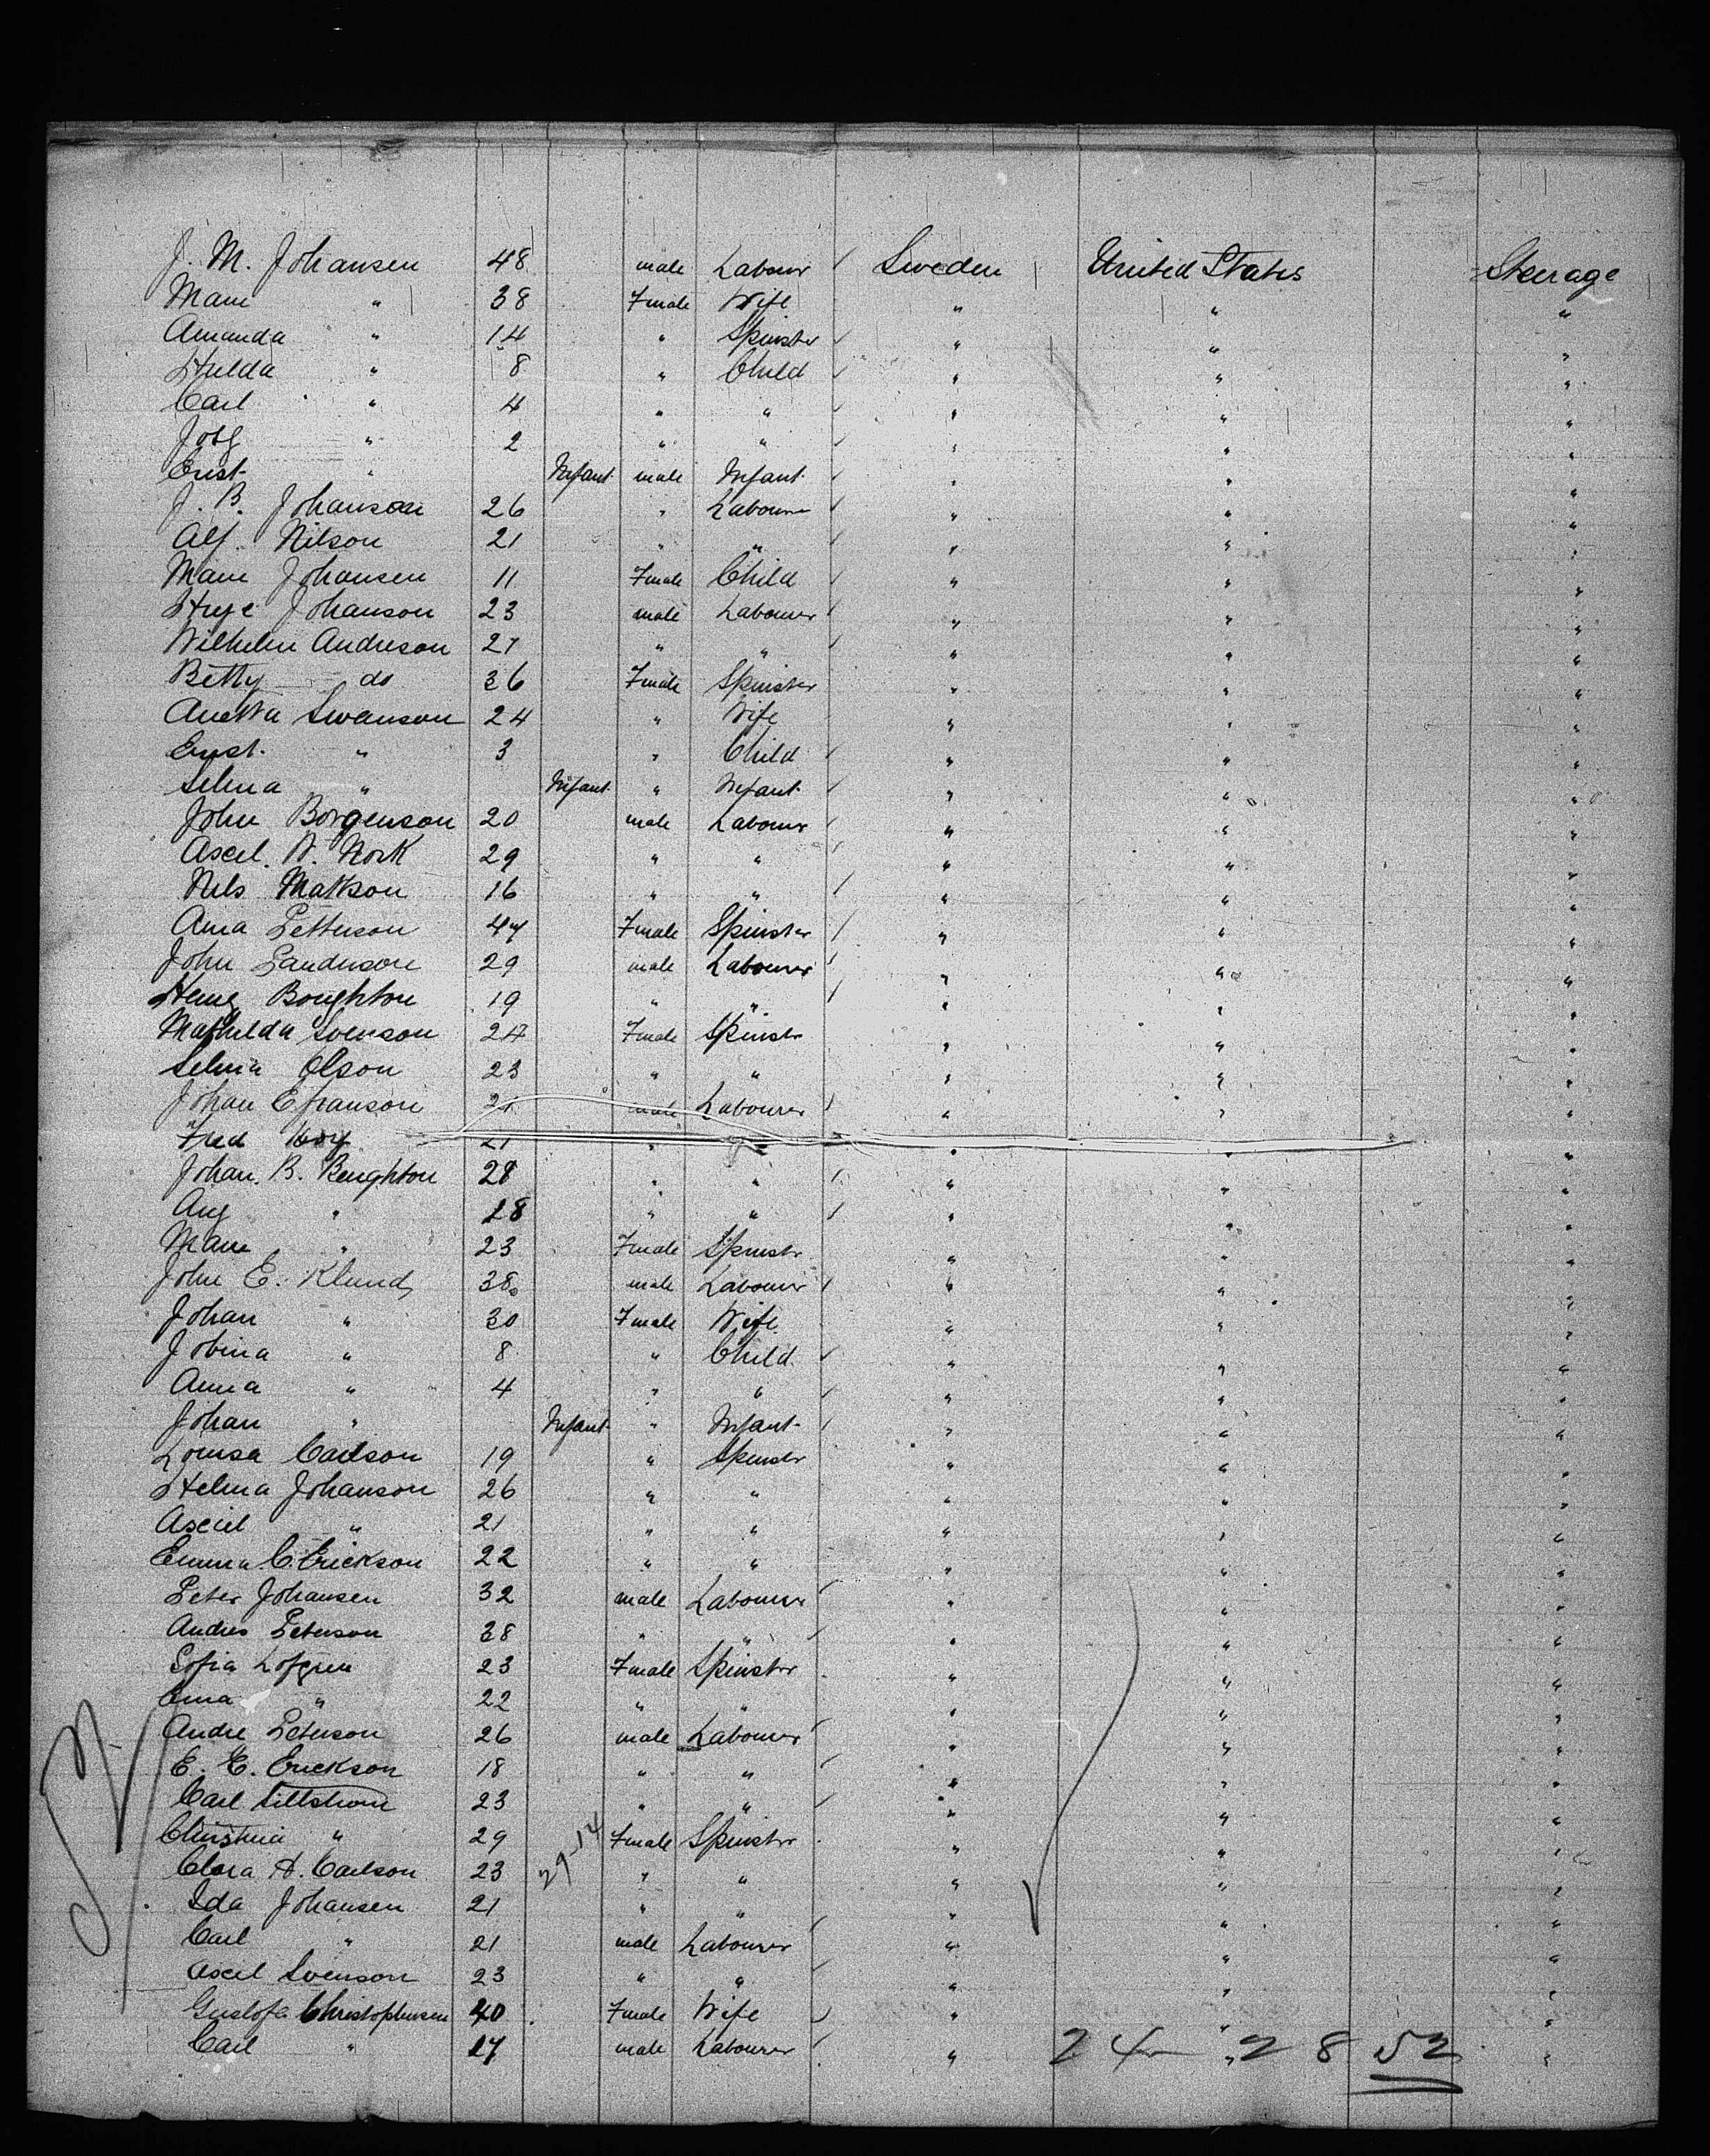 J. M. Johansen 48 male Labour / Sweden United States Steerage
Marie " 38 Female Wife " " "
Amanda " 14 " Spinster / " " "
Hulda " 8 " Child / " " "
Carl " 4 " " / " " "
" 2 " " / " " "
Ernst " Infant male Infant / " " "
J. B. Johanson 26 " Labourer / " " "
Alf. Nilson 21 " " / " " "
Marie Johansen 11 Female Child / " " "
Johanson 23 male Labourer / " " "
Wilhelm Andreson 27 " " / " " "
Betty do 36 Female Spinster " " "
Anetta Swanson 24 " Wife " " "
Ernst " 3 " Child / " " "
Selma " Infant " Infant / " " "
John Borgenson 20 male Labourer / " " "
Axel. A. Nork 29 " " / " " "
Nils Matson 16 " " / " " "
Anna Petterson 47 Female Spinster / " " "
John Landerson 29 male Labourer / " " "
Henry Boughton 19 " " / " " "
Mathilda Svenson 24 Female Spinster " " "
Selma Olson 23 " " " " "
Johan Efranson male Labourer / " " "
Fred 21 " " " " "
Johan. B. Benghton 28 " " / " " "
Aug " 28 " " / " " "
Marie " 23 Female Spinster " " "
John E. Klund 38 male Labourer / " " "
Johan " 30 Female Wife " " "
Jobina " 8 " Child / " " "
Anna " 4 " " / " " "
Johan " Infant " Infant / " " "
Louisa Carlson 19 " Spinster " " "
Helma Johanson 26 " " " " "
Axcel " 21 " " " " "
Emma C. Erickson 22 " " " " "
Peter Johansen 32 male Labourer / " " "
Andres Peterson 38 " " / " " "
Sofia Lofgren 23 Female Spinster " " "
Erna " 22 " " " " "
Andre Peterson 26 male Labourer / " " "
E. E. Erickson 18 " " / " " "
Carl Sillstrom 23 " " / " " "
Christina " 29 Female Spinster " " "
Clara A. Carlson 23 " " " " "
Ida Johansen 21 " " " " "
Carl " 21 male Labourer / " " "
Axel Svenson 23 " " / " " "
Gustofa Christophersen 40 Female Wife " " "
Carl " 17 male Labourer / " " "
24 28 52